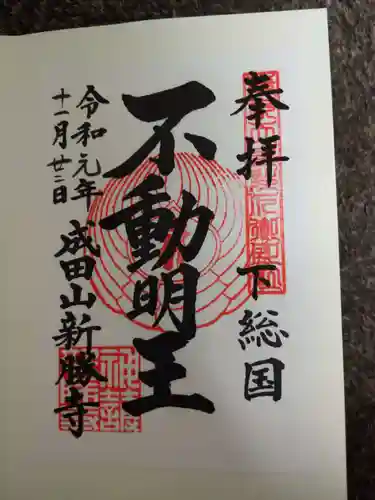 奉拝
下総国
不動明王
令和元年
十一月廿二日
成田山新勝寺